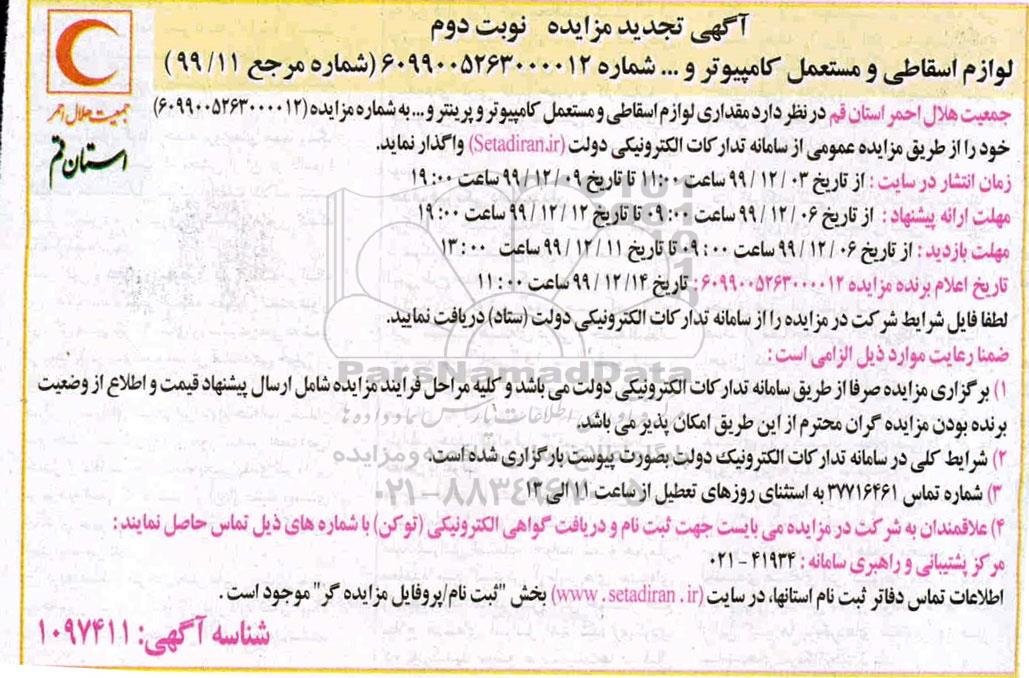 آگهی تجدید مزایده نوبت دوم
لوازم اسقاطی و مستعمل کامپیوتر و ... شماره ۶۰۹۹۰۰۵۲۶۳۰۰۰۰۱۲ (شماره مرجع ۱۱/ ۹۹)
جمعیت هلال احمر
استان قم
جمعیت هلال احمر استان قم در نظر دارد مقداری لوازم اسقاطی و مستعمل کامپیوتر و پرینتر و ... به شماره مزایده (۶۰۹۹۰۰۵۲۶۳۰۰۰۰۱۲)
خود را از طریق مزایده عمومی از سامانه تدارکات الکترونیکی دولت (Setadiran.ir) واگذار نماید.
زمان انتشار در سایت : از تاریخ ۰۳ / ۱۲ / ۹۹ ساعت ۱۱:۰۰ تا تاریخ ۰۹ / ۱۲ / ۹۹ ساعت ۰۰ : ۱۹
مهلت ارائه پیشنهاد : از تاریخ ۰۶ / ۱۲ / ۹۹ ساعت ۰۰ : ۰۹ تا تاریخ ۱۲ / ۱۲ / ۹۹ ساعت ۰۰ : ۱۹
مهلت بازدید : از تاریخ ۰۶ / ۱۲ / ۹۹ ساعت ۰۰ : ۰۹ تا تاریخ ۱۱ / ۱۲ / ۹۹ ساعت ۰۰ : ۱۳
تاریخ اعلام برنده مزایده ۶۰۹۹۰۰۵۲۶۳۰۰۰۰۱۲ : تاریخ ۱۴ / ۱۲ / ۹۹ ساعت ۰۰ : ۱۱
لطفا فایل شرایط شرکت در مزایده را از سامانه تدارکات الکترونیکی دولت (ستاد) دریافت نمایید.
ضمنا رعایت موارد ذیل الزامی است :
۱) برگزاری مزایده صرفا از طریق سامانه تدارکات الکترونیکی دولت می باشد و کلیه مراحل فرایند مزایده شامل ارسال پیشنهاد قیمت و اطلاع از وضعیت
برنده بودن مزایده گران محترم از این طریق امکان پذیر می باشد.
۲) شرایط کلی در سامانه تدارکات الکترونیک دولت بصورت پیوست بارگزاری شده است.
۳) شماره تماس ۳۷۷۱۶۴۶۱ به استثنای روزهای تعطیل از ساعت ۱۱ الی ۱۲
۴) علاقمندان به شرکت در مزایده می بایست جهت ثبت نام و دریافت گواهی الکترونیکی (توکن) با شماره های ذیل تماس حاصل نمایند :
مرکز پشتیبانی و راهبری سامانه : ۴۱۹۳۴ - ۰۲۱
اطلاعات تماس دفاتر ثبت نام استانها، در سایت (www . setadiran . ir) بخش "ثبت نام/پروفایل مزایده گر" موجود است .
شناسه آگهی: ۱۰۹۷۴۱۱
ParsNamadData